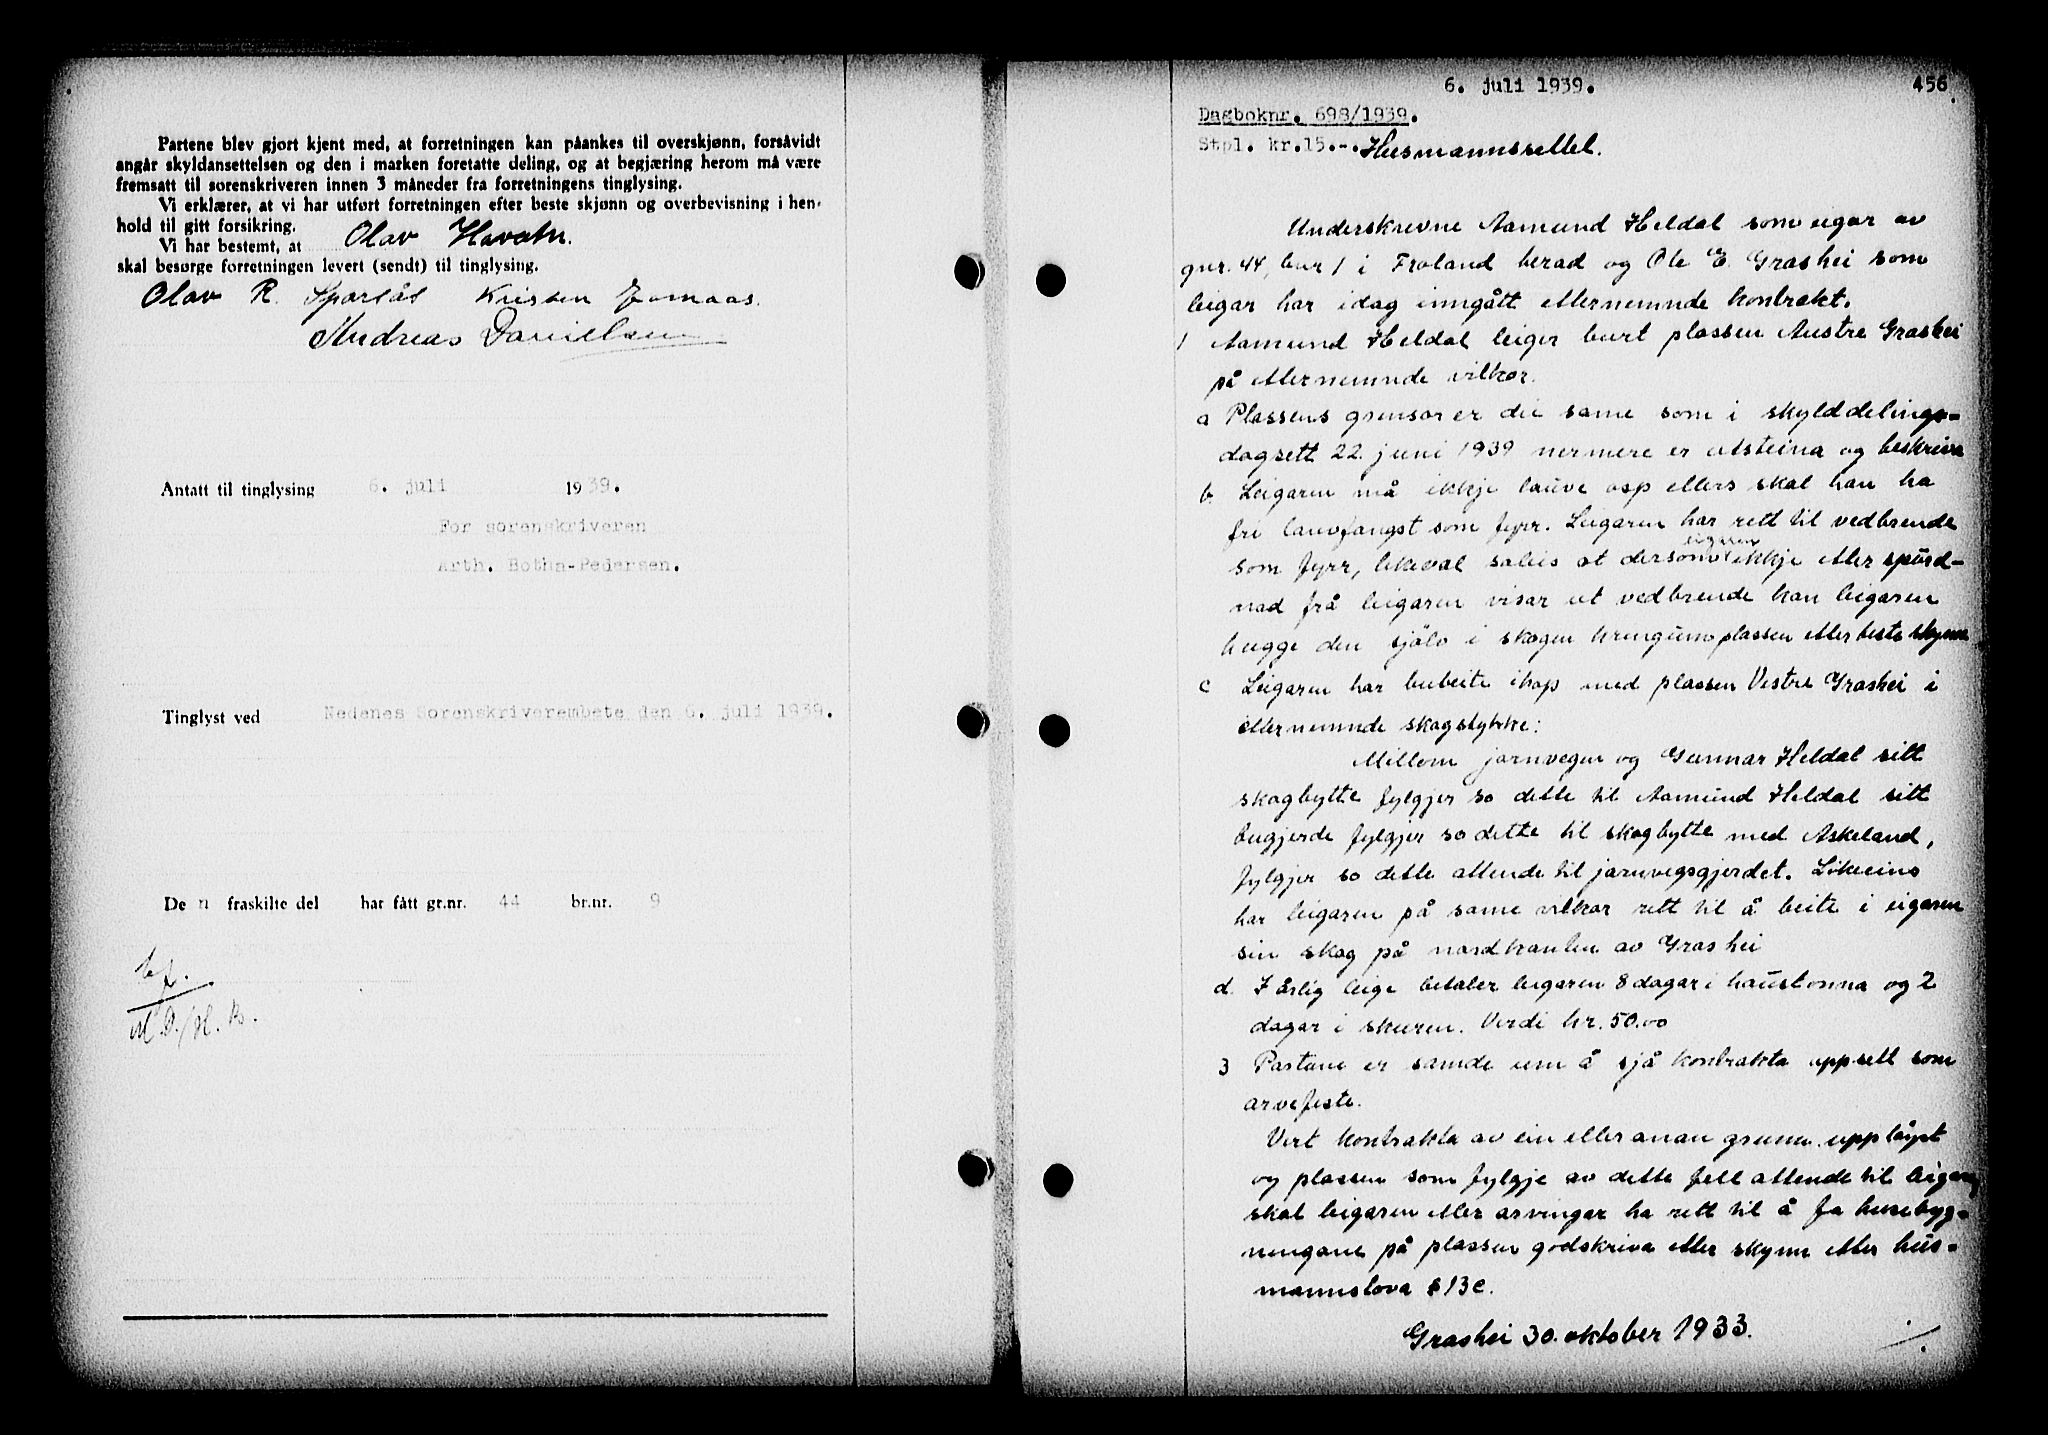 Partene blev gjort kjent med, at forretningen kan påankes til overskjønn, forsåvidt
angår skyldansettelsen og den i marken foretatte deling, og at begjæring herom må være
fremsatt til sorenskriveren innen 3 måneder fra forretningens tinglysing.
Vi erklærer, at vi har utført forretningen efter beste skjønn og overbevisning i hen-
hold til gitt forsikring.
Vi har bestemt, at Olav
skal besørge forretningen levert (sendt) til tinglysing.
Olav R. Kristen
Andreas Danielsen
Antatt til tinglysing 6. juli 1939.
For sorenskriveren
Arth. Botha-Pedersen.
Tinglyst ved Nedenes Sorenskriverembete den 6. juli 1939.
Den fraskilte del har fått gr.nr. 44 br.nr. 9
6. juli 1939. 456
Dagboknr. 698/1939.
Stpl. kr.15.-. Husmannssettel.
Underskrevne Aamund Heldal som eigar av
gnr. 44, bnr 1 i Froland herad og Ole E. Grashei som
leigar har idag inngått etternemnde kontrakt.
1 Aamund Heldal leiger burt plassen Austre Grashei
på etternemnde vilkor.
a Plassens grensor er dei same som i skylddelings-
dagsett 22. juni 1939 nermere er utsteina og beskriva
b. Leigaren må ikkje lauve osp ellers skal han ha
fri lauvfangst som fyrr. Leigaren har rett til vedbrende
som fyrr, likeval soleis at dersom eigaren ikkje etter spurd-
nad frå leigaren visar ut vedbrende kan leigaren
hugge den sjölv i skogen kringum plassen etter beste skynn
c Leigaren har bubeite ihop med plassen Vestre Grashei i
etternemnde skogstykke:
Millom jarnvegen og Gunnar Heldal sitt
skogbytte fylgjer so dette til Aamund Heldal sitt
bugjerde fylgjer so dette til skogbytte med Askeland,
fylgjer so dette attende til jarnvegsgjerdet. Likeeins
har leigaren på same vilkor rett til å beite i eigaren
sin skog på nordkanten av Grashei
d. I årlig leige betaler leigaren 8 dagar i haustonna og 2
dagar i skuren. Verdi kr. 50.00
3 Partane er samde um å sjå kontrakta uppsett som
arvefeste.
Vert kontrakta av ein eller anan grunn upplöyst
og plassen som fylgje av dette fell attende til eigaren
skal leigaren eller arvingar ha rett til å fa husebyg-
ningane på plassen godskriva etter skynn etter hus-
mannslova § 13 c.
Grashei 30. oktober 1933.